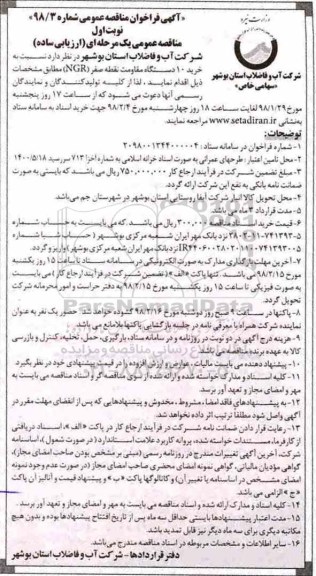 «آگهی فراخوان مناقصه عمومی شماره ۹۸/۳»
نوبت اول
مناقصه عمومی یک مرحله ای (ارزیابی ساده)
شرکت آب و فاضلاب استان بوشهر
«سهامی خاص»
شرکت آب و فاضلاب استان بوشهر در نظر دارد نسبت به
خرید ۱۰ دستگاه مقاومت نقطه صفر (NGR) مطابق مشخصات
ذیل اقدام نمایند، لذا از کلیه تولیدکنندگان و نمایندگان
رسمی آنها دعوت می شود که از ساعت ۱۷ روز پنجشنبه
مورخ ۹۸/۱/۲۹ لغایت ساعت ۱۸ روز چهارشنبه مورخ ۹۸/۲/۴ جهت خرید اسناد به سامانه ستاد
به نشانی www.setadiran.ir مراجعه نمایند.
توضیحات:
۱- شماره فراخوان در سامانه ستاد: ۲۰۹۸۰۰۱۳۴۴۰۰۰۰۰۴
۲- محل تامین اعتبار: طرحهای عمرانی به صورت اسناد خزانه اسلامی به شماره اخزا ۷۱۳ سررسید ۱۴۰۰/۵/۱۸
۳- مبلغ تضمین شرکت در فرآیند ارجاع کار ۷۵۰،۰۰۰،۰۰۰ ریال می باشد که بایستی به صورت
ضمانت نامه بانکی به نفع این شرکت ارائه گردد.
۴- محل تحویل کالا انبار شرکت آبفا روستایی استان بوشهر در شهرستان جم می باشد.
۵- مدت قرارداد ۳ ماه می باشد.
۶- قیمت خرید اسناد مناقصه ۳۰۰،۰۰۰ ریال می باشد که می بایست به حساب شماره
نزد بانک مهر ایران شعبه مرکزی بوشهر (حساب شبا شماره
نزد بانک مهر ایران شعبه مرکزی بوشهر) واریز گردد.
۷- آخرین مهلت بارگذاری مدارک به صورت الکترونیکی در سامانه ستاد تا ساعت ۱۵ روز یکشنبه
مورخ ۹۸/۲/۱۵ می باشد. تنها پاکت «الف» (تضمین شرکت در فرآیند ارجاع کار) می بایست
به صورت فیزیکی تا ساعت ۱۵ روز یکشنبه مورخ ۹۸/۲/۱۵ به دفتر حراست و امور محرمانه شرکت
تحویل گردد.
۸- پاکتها در ساعت ۹ صبح روز دوشنبه مورخ ۹۸/۲/۱۶ گشوده خواهد شد. حضور یک نفر به عنوان
نماینده شرکت همراه با معرفی نامه در جلسه بازگشایی پاکتها بلامانع می باشد.
۹- هزینه درج آگهی در دو نوبت در روزنامه و در سامانه ستاد، بارگیری، حمل، تخلیه، کنترل و بازرسی
کالا به عهده برنده مناقصه می باشد.
۱۰- پیشنهاد دهنده می بایست مالیات، عوارض و ارزش افزوده را در قیمت پیشنهادی خود در نظر بگیرد.
۱۱- کلیه اسناد و مدارک خواسته شده و ارائه شده از سوی مناقصه گر و اسناد مناقصه می بایست به
مهر و امضای مجاز و تعهد آور برسد.
۱۲- به پیشنهادهای فاقد امضاء، مشروط، مخدوش و پیشنهادهایی که پس از انقضای مهلت مقرر در
آگهی واصل شود مطلقا ترتیب اثر داده نخواهد شد.
۱۳- رعایت قرار دادن ضمانت نامه شرکت در فرآیند ارجاع کار در پاکت «الف»، اسناد دریافتی
از کارفرما، مستندات خواسته شده، پروانه کاربرد علامت استاندارد (در صورت شمول)، اساسنامه
شرکت، آخرین آگهی تغییرات مندرج در روزنامه رسمی (مبنی بر مشخص بودن صاحب امضای مجاز)،
گواهی مؤدیان مالیاتی، گواهی نمونه امضای محضری صاحب امضای مجاز (در صورت عدم وجود نمونه
امضای مشخص در اساسنامه یا تغییر آن) و کاتالوگها پاکت «ب» و پیشنهاد قیمت و آنالیز آن پاکت
«ج» الزامی می باشد.
۱۴- کلیه اسناد و مدارک ارائه شده و اسناد مناقصه می بایست به مهر و امضای مجاز و تعهد آور برسد.
۱۵- مدت اعتبار پیشنهادها بایستی حداقل سه ماه پس از تاریخ افتتاح پیشنهادها بوده و بدون هیچ
مکاتبه دیگری برای سه ماه دیگر نیز قابل تمدید باشد.
۱۶- سایر اطلاعات و مشخصات مربوطه در اسناد مناقصه مندرج می باشد.
دفتر قراردادها - شرکت آب و فاضلاب استان بوشهر